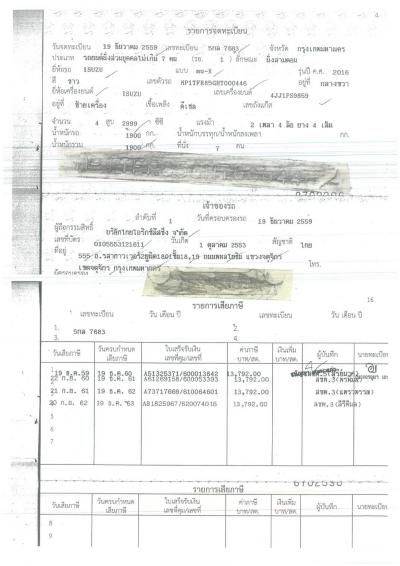 รายการจดทะเบียน
วันจดทะเบียน 19 ธันวาคม 2559 เลขทะเบียน 5กล 7683 จังหวัด กรุงเทพมหานคร
ประเภท รถยนต์นั่งส่วนบุคคลไม่เกิน 7 คน (1) ลักษณะ นั่งสามตอน
ยี่ห้อรถ ISUZU แบบ mu-X รุ่นปี ค.ศ. 2016
สี ขาว เลขตัวรถ อยู่ที่ กลางขวา
ยี่ห้อเครื่องยนต์ ISUZU เลขเครื่องยนต์ 4JJ1PS9859
อยู่ที่ ซ้ายเครื่อง เชื้อเพลิง ดีเซล เลขถังแก๊ส
จำนวน 4 สูบ 2999 ซีซี แรงม้า 2 เพลา 4 ล้อ ยาง 4 เส้น
น้ำหนักรถ 1900 กก. น้ำหนักบรรทุก/น้ำหนักลงเพลา กก.
น้ำหนักรวม 1900 กก. ที่นั่ง 7 คน
เจ้าของรถ
ลำดับที่ 1 วันที่ครอบครองรถ 19 ธันวาคม 2559
ผู้ถือกรรมสิทธิ์
เลขที่บัตร 0105553121611 วันเกิด 1 ตุลาคม 2553 สัญชาติ ไทย
ที่อยู่
เขตจตุจักร กรุงเทพมหานคร โทร.
16
รายการเสียภาษี
เลขทะเบียน วัน เดือน ปี เลขทะเบียน วัน เดือน ปี
1. 5กล 7683 2.
3. 4.
วันเสียภาษี วันครบกำหนดเสียภาษี ใบเสร็จรับเงินเล่มที่คุม/เลขที่ ค่าภาษีบาท/สต. เงินเพิ่มบาท/สต. ผู้บันทึก นายทะเบียน
19 ธ.ค. 59 19 ธ.ค. 60 A51325371/600013642 13,792.00
22 ก.ย. 60 19 ธ.ค. 61 A61269158/600053393 13,792.00
21 ก.ย. 61 19 ธ.ค. 62 A73717669/610064601 13,792.00
20 ก.ย. 62 19 ธ.ค. 63 A81825967/620074016 13,792.00
5
6
7
รายการเสียภาษี
วันเสียภาษี วันครบกำหนดเสียภาษี ใบเสร็จรับเงินเล่มที่คุม/เลขที่ ค่าภาษีบาท/สต. เงินเพิ่มบาท/สต. ผู้บันทึก นายทะเบียน
8
9